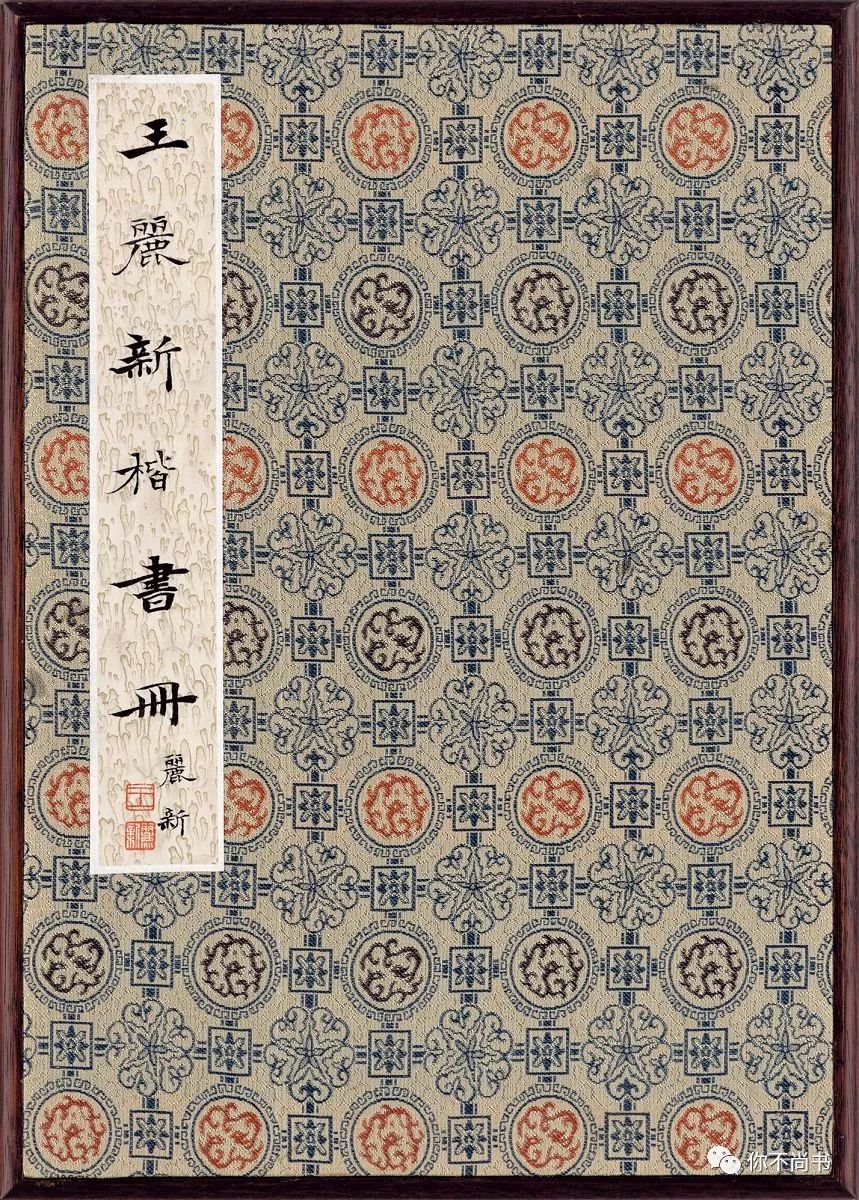 王麗新楷書冊
麗新
王
麗新
你不尚书